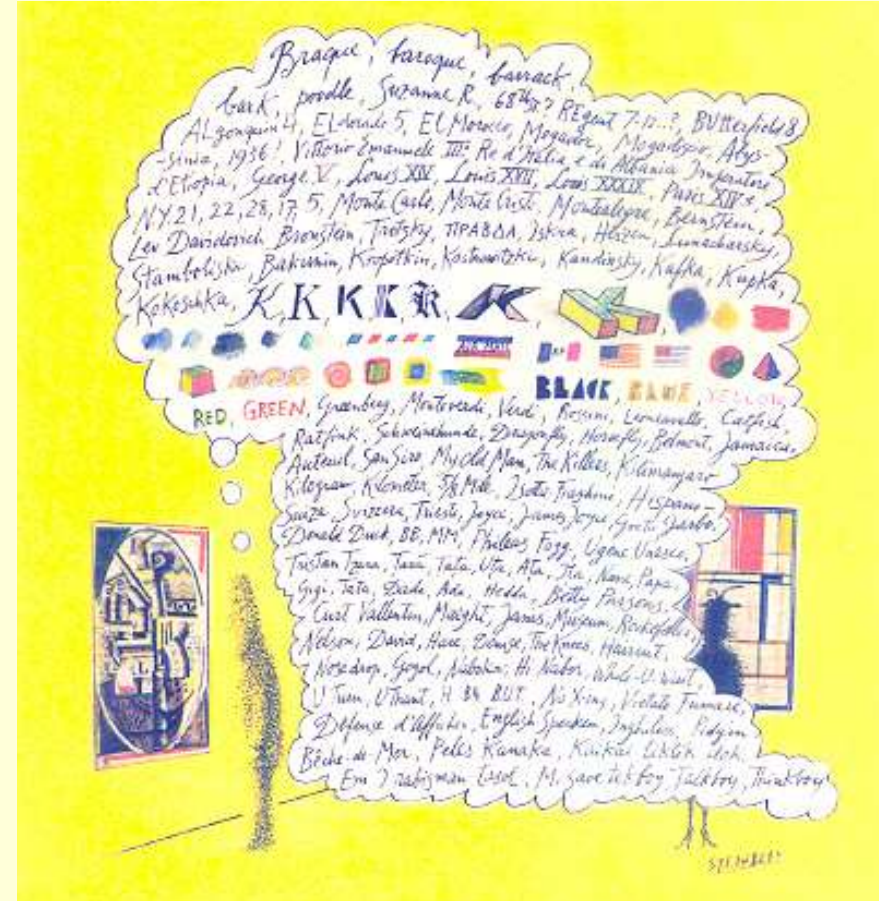 Braque, baroque, barrack,
bark, poodle, Suzanne R., 68th St? REgent 7-12...?, BUtterfield 8,
ALgonquin 4, ELdorado 5, El Morocco, Mogador, Mogadiscio, Abys-
-sinia, 1936!, Vittorio Emanuele III: Re d'Italia e di Albania Imperatore
d'Etiopia, George V, Louis XIV, Louis XVII, Louis XXXIX, Paris XIVe,
N.Y. 21, 22, 28, 17, 5, Monte Carlo, Monte Cristo, Montealegre, Bernstein,
Lev Davidovich Bronstein, Trotzky, ПРАВДА, Iskra, Herzen, Lunacharsky,
Stamboliski, Bakunin, Kropotkin, Kostrowitzky, Kandinsky, Kafka, Kupka,
Kokoschka, K, K, K, K, K, K,
BLACK, BLUE, YELLOW
RED, GREEN, Greenberg, Monteverdi, Verdi, Rossini, Leoncavallo, Catfish,
Ratfink, Schweinehunde, Dragonfly, Horsefly, Belmont, Jamaica,
Auteuil, San Siro, My Old Man, The Killers, Kilimanjaro
Kilogram, Kilometer, 5/8 Mile, Isotta Fraschini, Hispano-
Suiza, Svizzera, Trieste, Joyce, James Joyce, Greta Garbo,
Donald Duck, BB, MM, Phileas Fogg, Ugene Unesco,
Tristan Tzara, Tata, Uta, Ata, Nana, Papa,
Gigi, Tata, Dada, Ada, Hedda, Betty Parsons,
Curt Vallentin, Maeght, Janis, Museum, Rockefeller,
Nelson, David, Hare, The Knees,
Nosedrop, Gogol, Nabokov, Hi Nabor, While-U-wait,
U Turn, U Thant, H BUT, No X-ing, Vietato Fumare,
Défense d'Afficher, English Spoken, Pidgin
Bêche-de-Mer, Kanaka,
Em, Talkboy, Thinkboy
STEINBERG